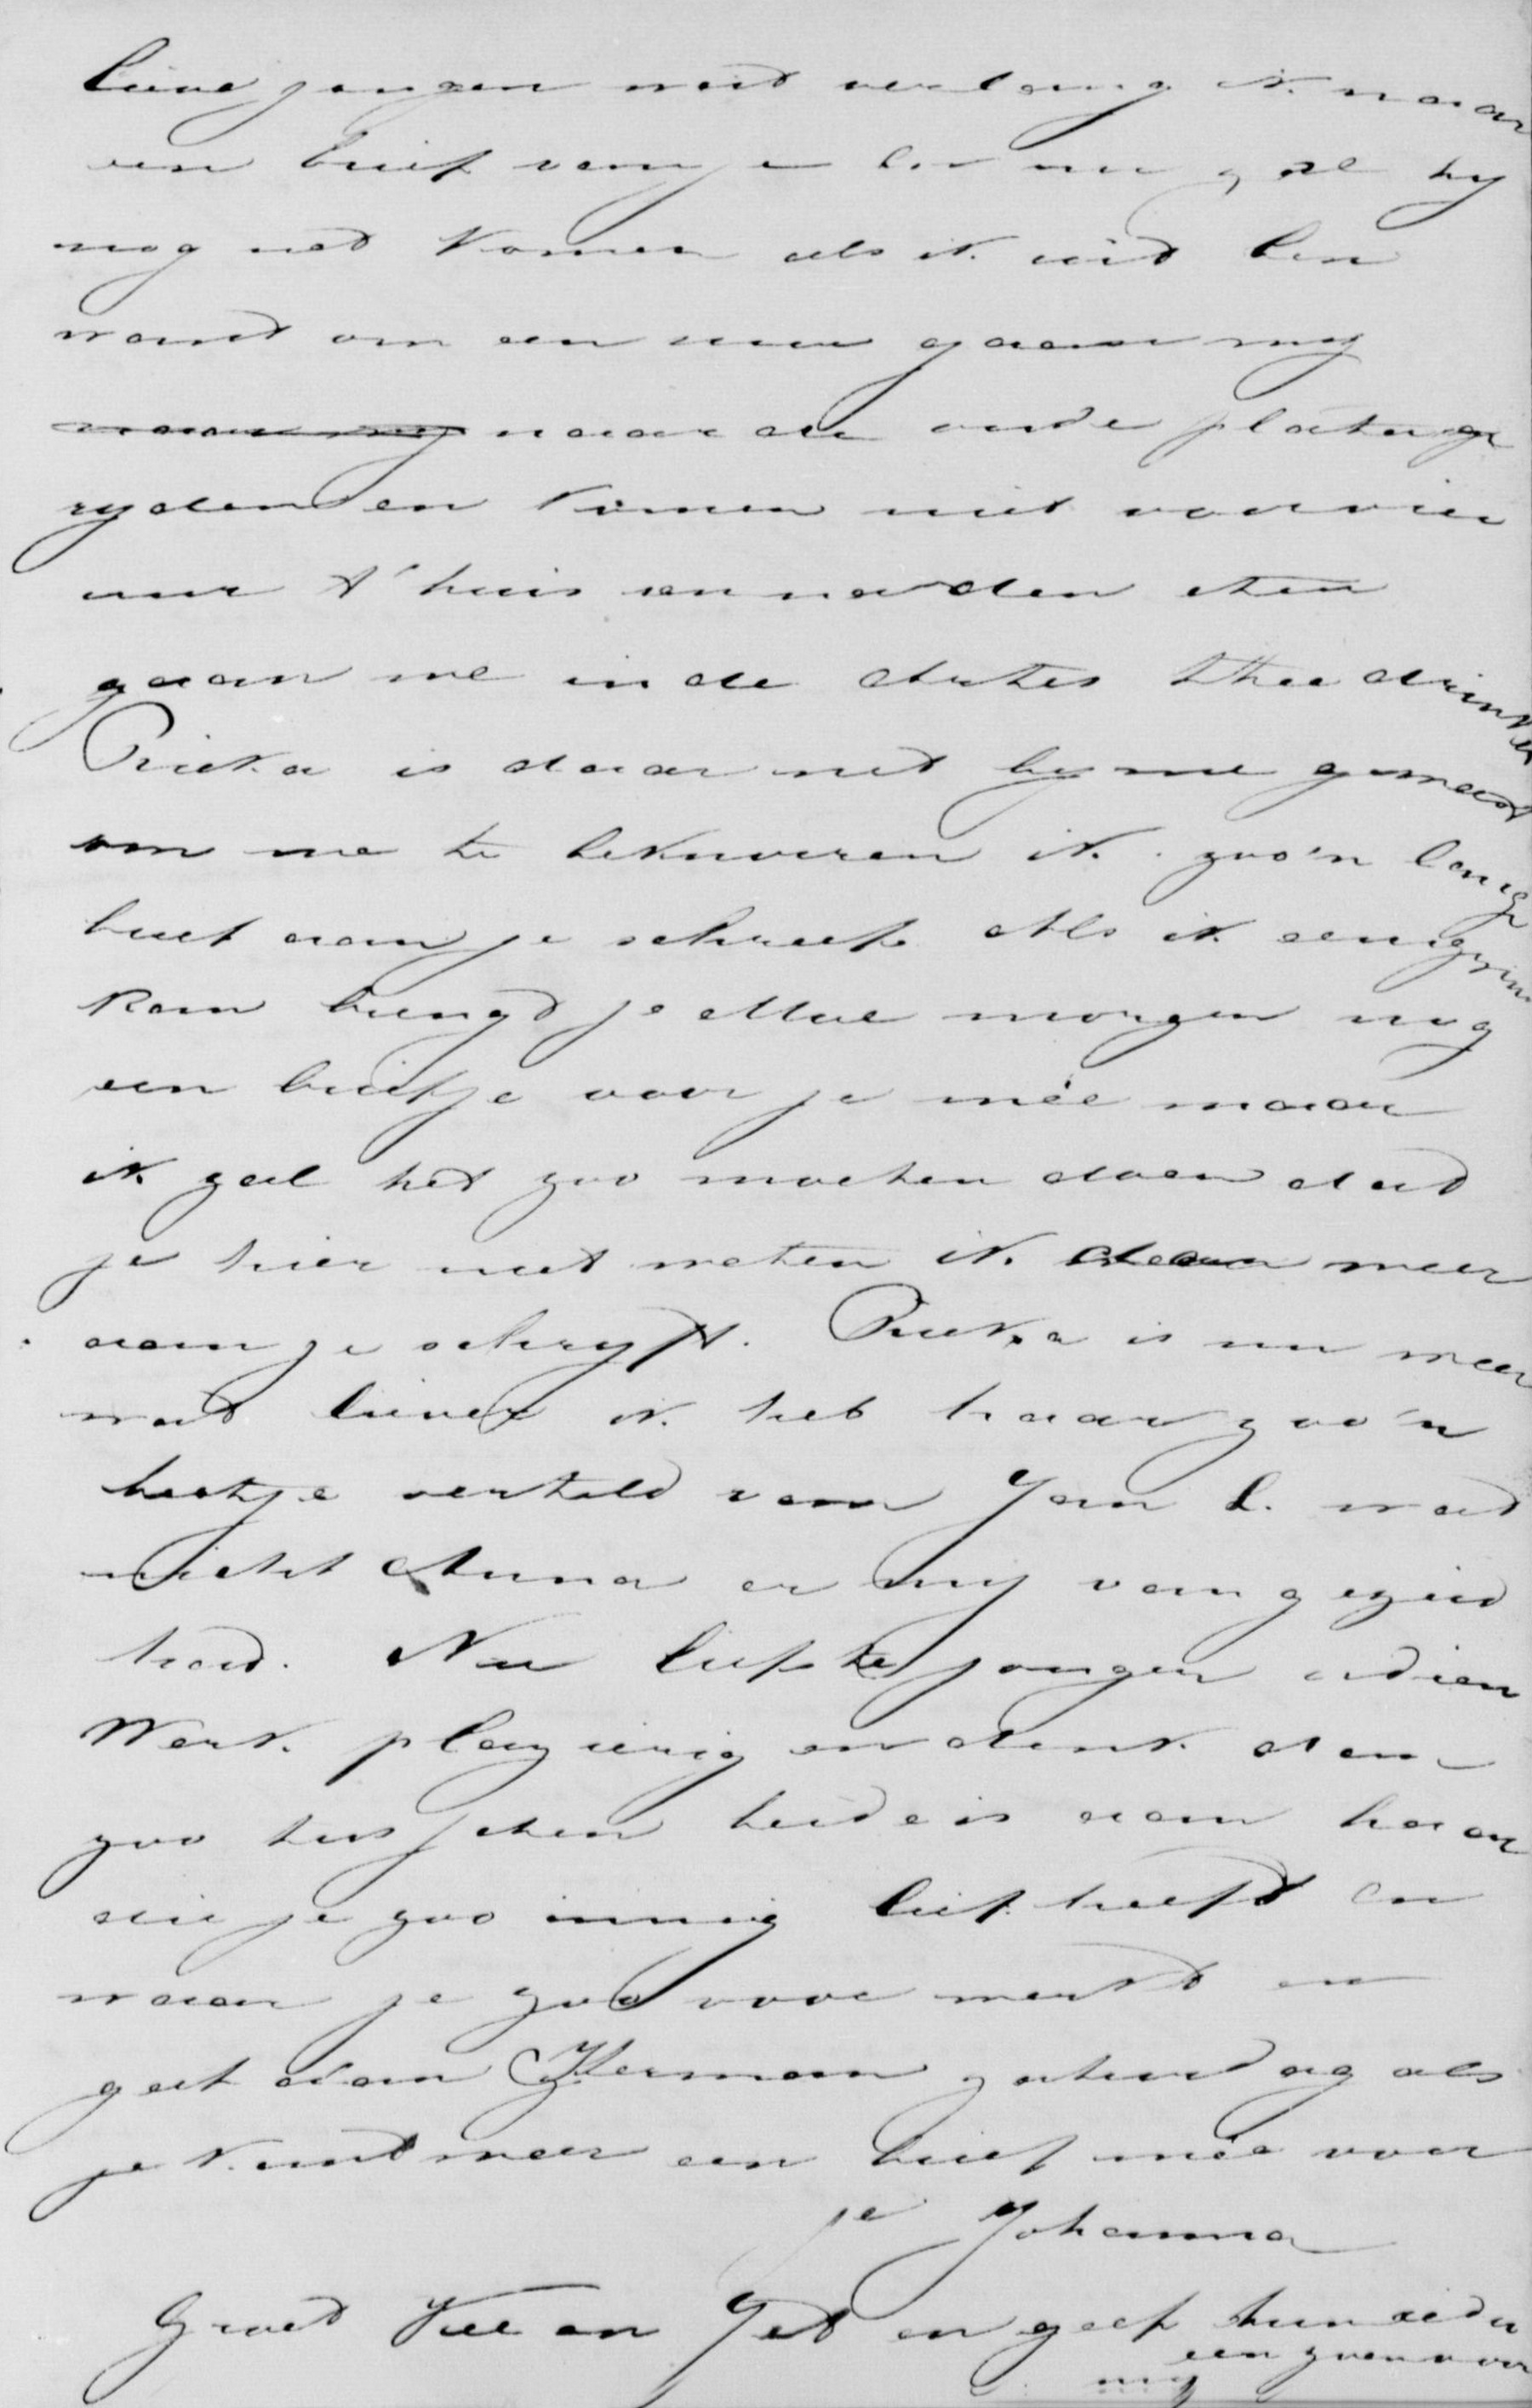 lieve jongen wat verlang ik naar
een brief van je en nu zal hy
nog net komen als ik uit ben
want om een uur gaan wij
naar de oude plantage
ryden en komen niet voor vier
uur t'huis en na den eten
gaan we in de Artis thee drinken
Rieka is daar net by me geweest
om me te beknorren ik zoo'n lange
brief aan je schreef Als ik eenigzins
kan brengt je Moe morgen nog
een briefje voor je mée maar
ik zal het zoo moeten doen dat
ze hier niet weten ik daar weer
aan je schryft. Rieka is nu weer
wat liever ik heb haar zoo'n
beetje verteld van Jan L. wat
nicht Anna er my van gezeid
had. Nu liefste jongen adieu
Werk plezierig en denk dan
zoo tusschen beide is aan haar
die je zoo innig lief heeft en
waar je zoo voor werkt en
geef dan Herman zaturdag als
je kunt weer een brief mée voor
je Johanna
Groet Vee en Jet en geef hun ieder
een zoen voor
my